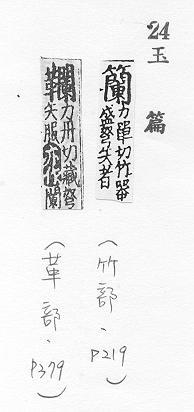 24
玉篇
籣力單切竹器
盛弩矢者
(竹部・P219)
韊力丹切藏弩
矢服亦
(革部・P379)